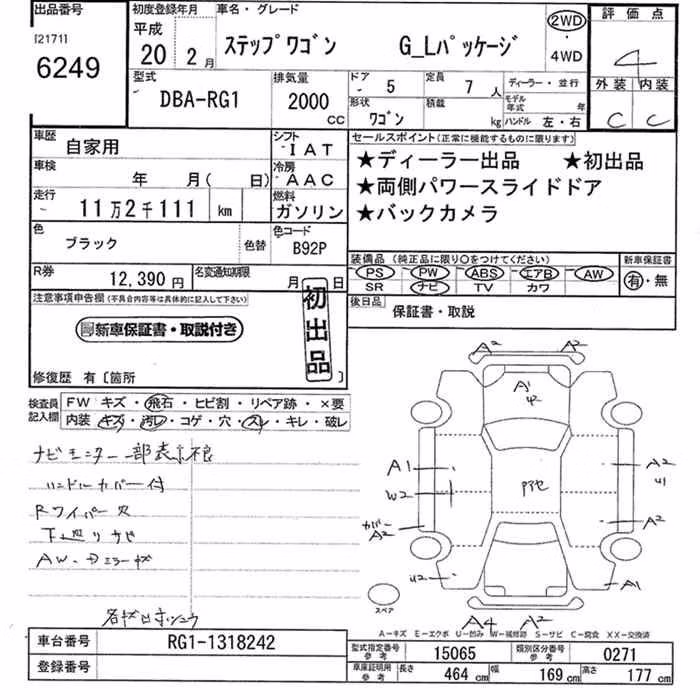 出品番号
[2171]
6249
初度登録年月
平成
20 2月
車名・グレード
ステップワゴン G_Lパッケージ
2WD
・
4WD
評価点
4
外装 内装
C C
型式
DBA-RG1
排気量
2000
CC
ドア
- 5
定員
7 人
形状
ワゴン
積載
kg
ディーラー・並行
モデル年式 年
ハンドル 左・右
車歴
自家用
シフト
-IAT
車検
年 月( 日)
冷房
-AAC
走行
- 11万2千111 km
燃料
ガソリン
色
ブラック
色替
色コード
B92P
R券
12,390円
名変通知期限
月 日
セールスポイント(正常に機能するものに限ります)
★ディーラー出品 ★初出品
★両側パワースライドドア
★バックカメラ
装備品(純正品に限り○をつけてください)
PS PW ABS エアB AW
SR ナビ TV カワ
新車保証書
有・無
後日品
保証書・取説
注意事項申告欄(不具合内容等は具体的に記入して下さい)
新車保証書・取説付き
初出品
修復歴 有〔箇所 〕
検査員記入欄
FW キズ・飛石・ヒビ割・リペア跡・×要
内装 キズ・汚レ・コゲ・穴・スレ・キレ・破レ
ナビモニター一部表示不良
ハンドルカバー付
Rワイパー欠
下廻りサビ
AW・Dミラーキズ
A2 A2
A1
A1
W2
カバー
A2
U2
A2
U1
A2
A1
A4 A2
スペア
A-キズ E-エクボ U-凹み W-補修跡 S-サビ C-腐食 XX-交換済
車台番号
RG1-1318242
登録番号
型式指定番号
参考
15065
類別区分番号
参考
0271
車庫証明用
参考
長さ 464 cm
幅 169 cm
高さ 177 cm